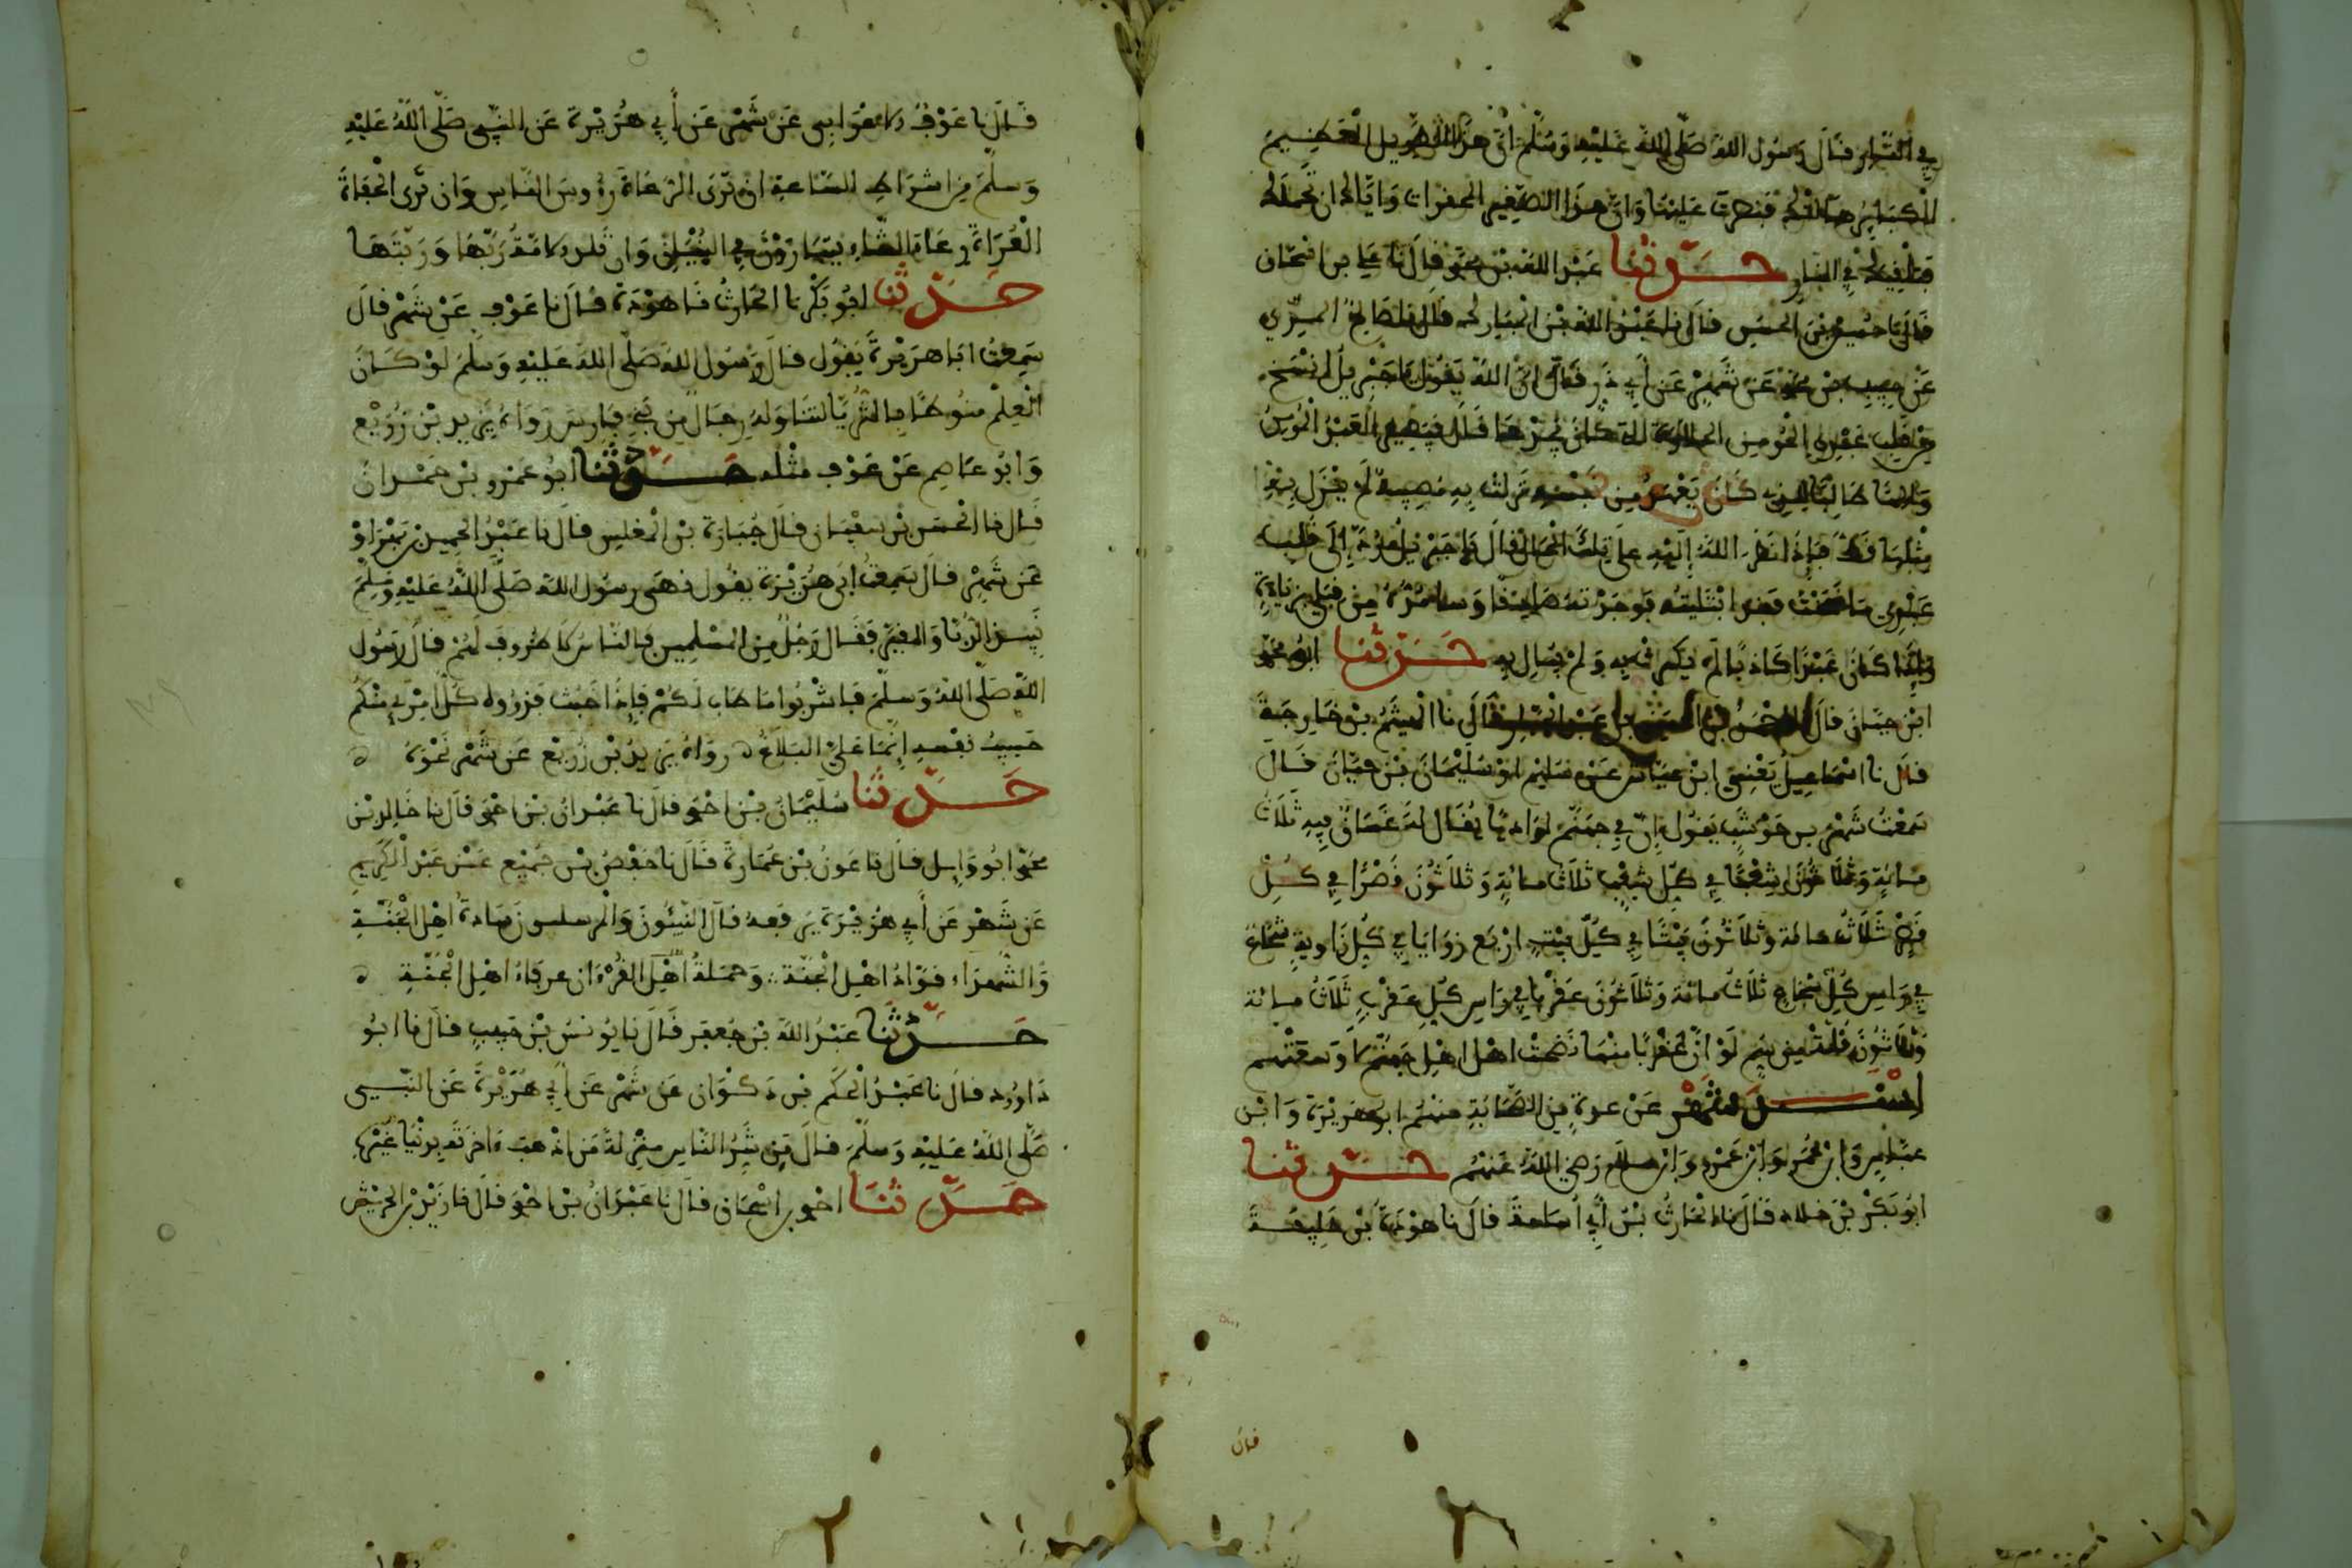 في النار فقال رسول الله صلى الله عليه وسلم ان هذا الطويل العظيم
الكبائر هلاكه قنطرت علينا وان هذا الصغير المحقرات واياك ان تحملك
فتلقيك في النار حَدَّثَنا عبد الله بن محمد قال نا علي بن اسحاق
قال نا حسين بن الحسن قال نا عبد الله بن المبارك قال نا صالح المري
عن حبيب بن محمد عن شهر عن أبي ذر قال ان الله يقول يا جبريل انسخ
من قلب عبدي المؤمن الحلاوة التي كان يجدها قال فيصير العبد المؤمن
والها طالبا للذي كان يعهد من نفسه نزلت به مصيبة لم ينزل به
مثلها قط فاذا نظر الله إليه على تلك الحال قال يا جبريل رد إلى قلب
عبدي ما نسخت فقد ابتليته فوجدته صادقا وسأمده من قبلي بزيادة
وإذا كان عبدا كذابا لم يكترث به ولم يبال به حَدَّثَنا ابو محمد
ابن حيان قال قال نا الهيثم بن خارجة
قال نا اسماعيل يعني ابن عياش عن سليم او سليمان بن حيان قال
سمعت شهر بن حوشب يقول إن في جهنم لواديا يقال له غساق فيه ثلاث
مائة وثلاثون شعبا في كل شعب ثلاث مائة وثلاثون قصرا في كل
قصر ثلاث مائة وثلاثون بيتا في كل بيت اربع زوايا في كل زاوية شجاع
في راس كل شجاع ثلاث مائة وثلاثون عقربا في راس كل عقرب ثلاث مائة
وثلاثون قلة من سم لو أن عقربا منها نضحت اهل جهنم لاوسعتهم
اسند شهر عن عدة من الصحابة منهم ابو هريرة وابن
عباس وابن عمر وابن عمرو وابن سلام رضي الله عنهم حَدَّثَنا
ابو بكر بن خلاد قال نا الحارث بن أبي أسامة قال نا هوذة بن خليفة
قال
قال نا عوف الاعرابي عن شهر عن أبي هريرة عن النبي صلى الله عليه
وسلم من اشراط الساعة ان ترى الرعاة رؤوس الناس وان ترى الحفاة
العراة رعاة الشاء يتبارون في البنيان وان تلد الامة ربها وربتها
حَدَّثَنا ابو بكر نا الحارث نا هوذة قال نا عوف عن شهر قال
سمعت ابا هريرة يقول قال رسول الله صلى الله عليه وسلم لو كان
العلم منوطا بالثريا لتناوله رجال من بني فارس رواه يزيد بن زريع
وابو عاصم عن عوف مثله حَدَّثَنا ابو عمرو بن حمدان
قال نا الحسن بن سفيان قال جبارة بن المغلس قال نا عبد الحميد بن بهرام
عن شهر قال سمعت ابي هريرة يقول نهى رسول الله صلى الله عليه وسلم
نبيذ الدبا والمقير فقال رجل من المسلمين فالناس لا ظروف لهم قال رسول
الله صلى الله وسلم فاشربوا ما طاب لكم فاذا خبث فذروه كل امرئ منكم
حبيب نفسه إنما علي البلاغ ه رواه يزيد بن زريع عن شهر نحوه ه
حَدَّثَنا سليمان بن احمد قال نا عبدان بن احمد قال نا خالد بن
محمد ابو وايل قال نا عون بن عمارة قال نا حفص بن جميع عن عبد الكريم
عن شهر عن أبي هريرة يرفعه قال النبيئون والمرسلون سادة اهل الجنة
والشهداء قواد اهل الجنة وحملة القرءان عرفاء اهل الجنة ه
حَدَّثَنا عبد الله بن جعفر قال نا يونس بن حبيب قال نا ابو
داوود قال نا عبد الحكم بن ذكوان عن شهر عن أبي هريرة عن النبي
صلى الله عليه وسلم قال من شر الناس منزلة من اذهب ءاخرته بدنيا غيره
حَدَّثَنا احمد بن اسحاق قال نا عبدان بن احمد قال نا زيد بن الحريش